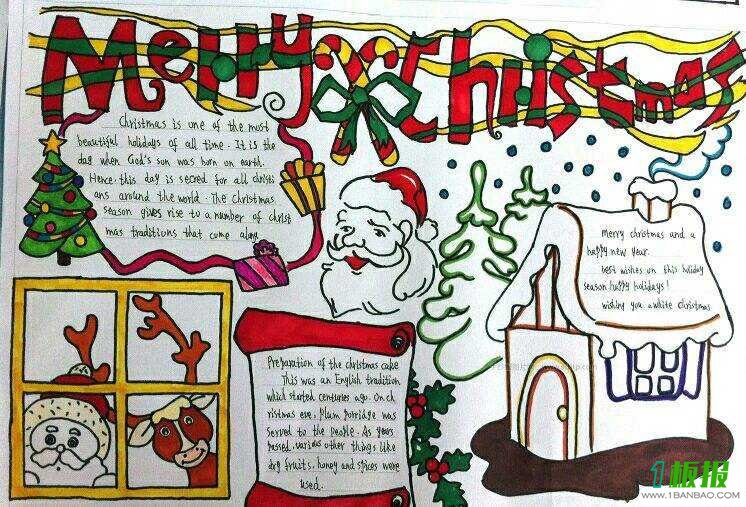 Merry Christmas
Christmas is one of the most
beautiful holidays of all time. It is the
day when God's son was born on earth.
Hence. this day is secred for all christi
ans around the world. The christmas
season gives rise to a number of christ
mas traditions that come along
merry christmas and a
happy new year.
best wishes on this holiday
season.happy holidays!
wishiny you a white Christmas
Preparation of the christmas cake
This was an English tradition
which started centuries ago. On ch
ristmas eve. Plum Porridge was
served to the people. As years
passed. various other things like
dry fruits, honey and spices were
used.
1板报
WWW.1BANBAO.COM